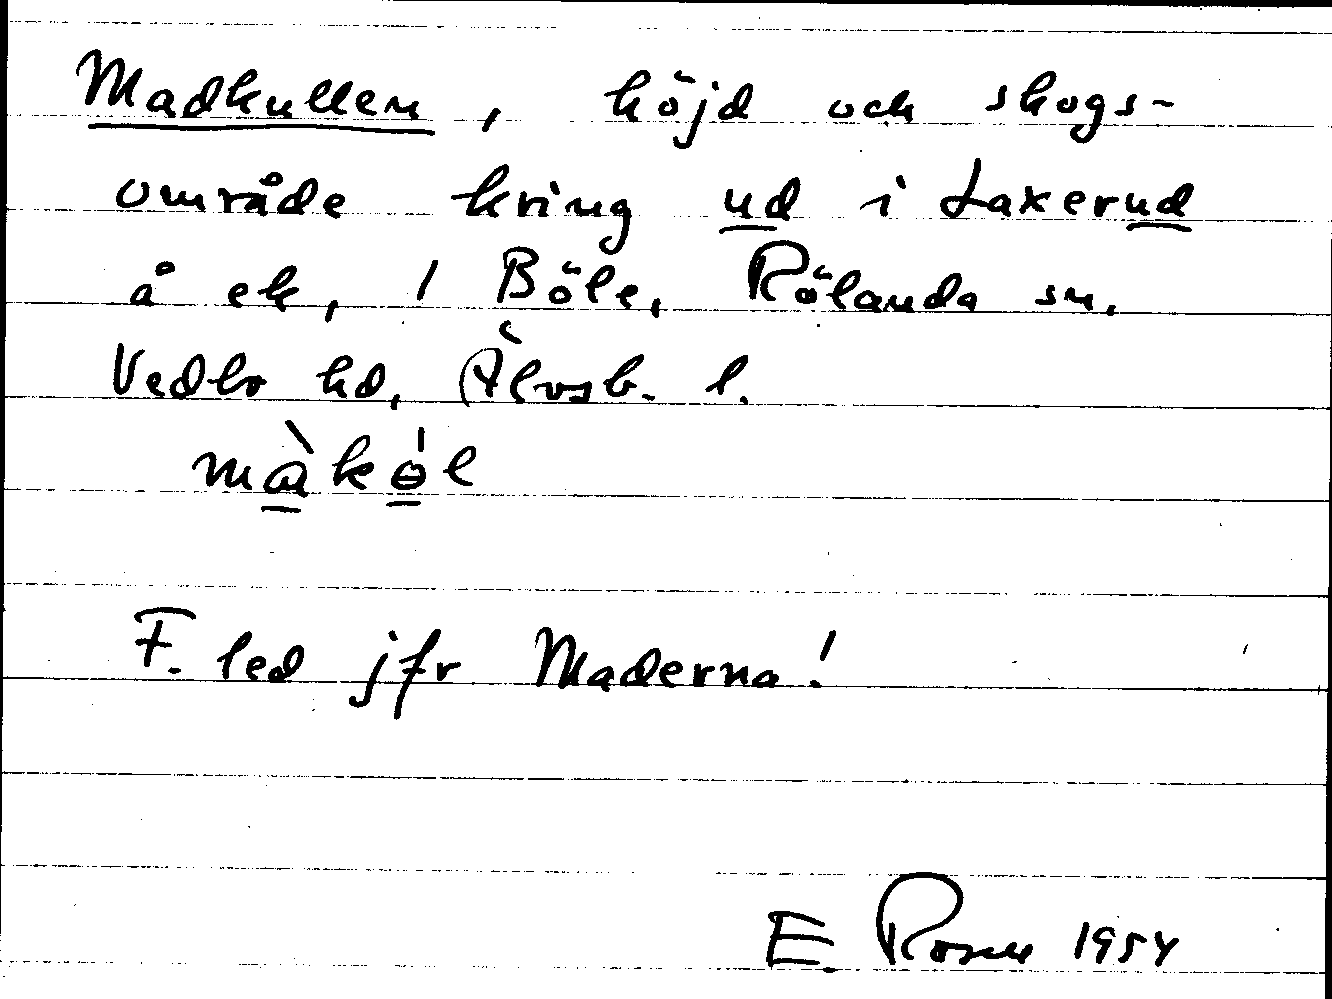 Madkullen, höjd och skogs-
område kring ud i Laxerud
å ek, 1 Böle, Rölanda sn,
Vedbo hd, Älvsb. l.
màkól
F. led jfr Maderna!
E. Rosen 1954